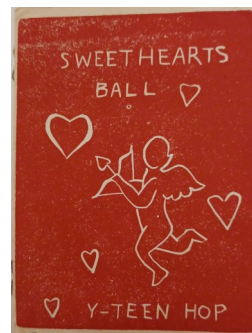 SWEETHEARTS
BALL
Y-TEEN HOP